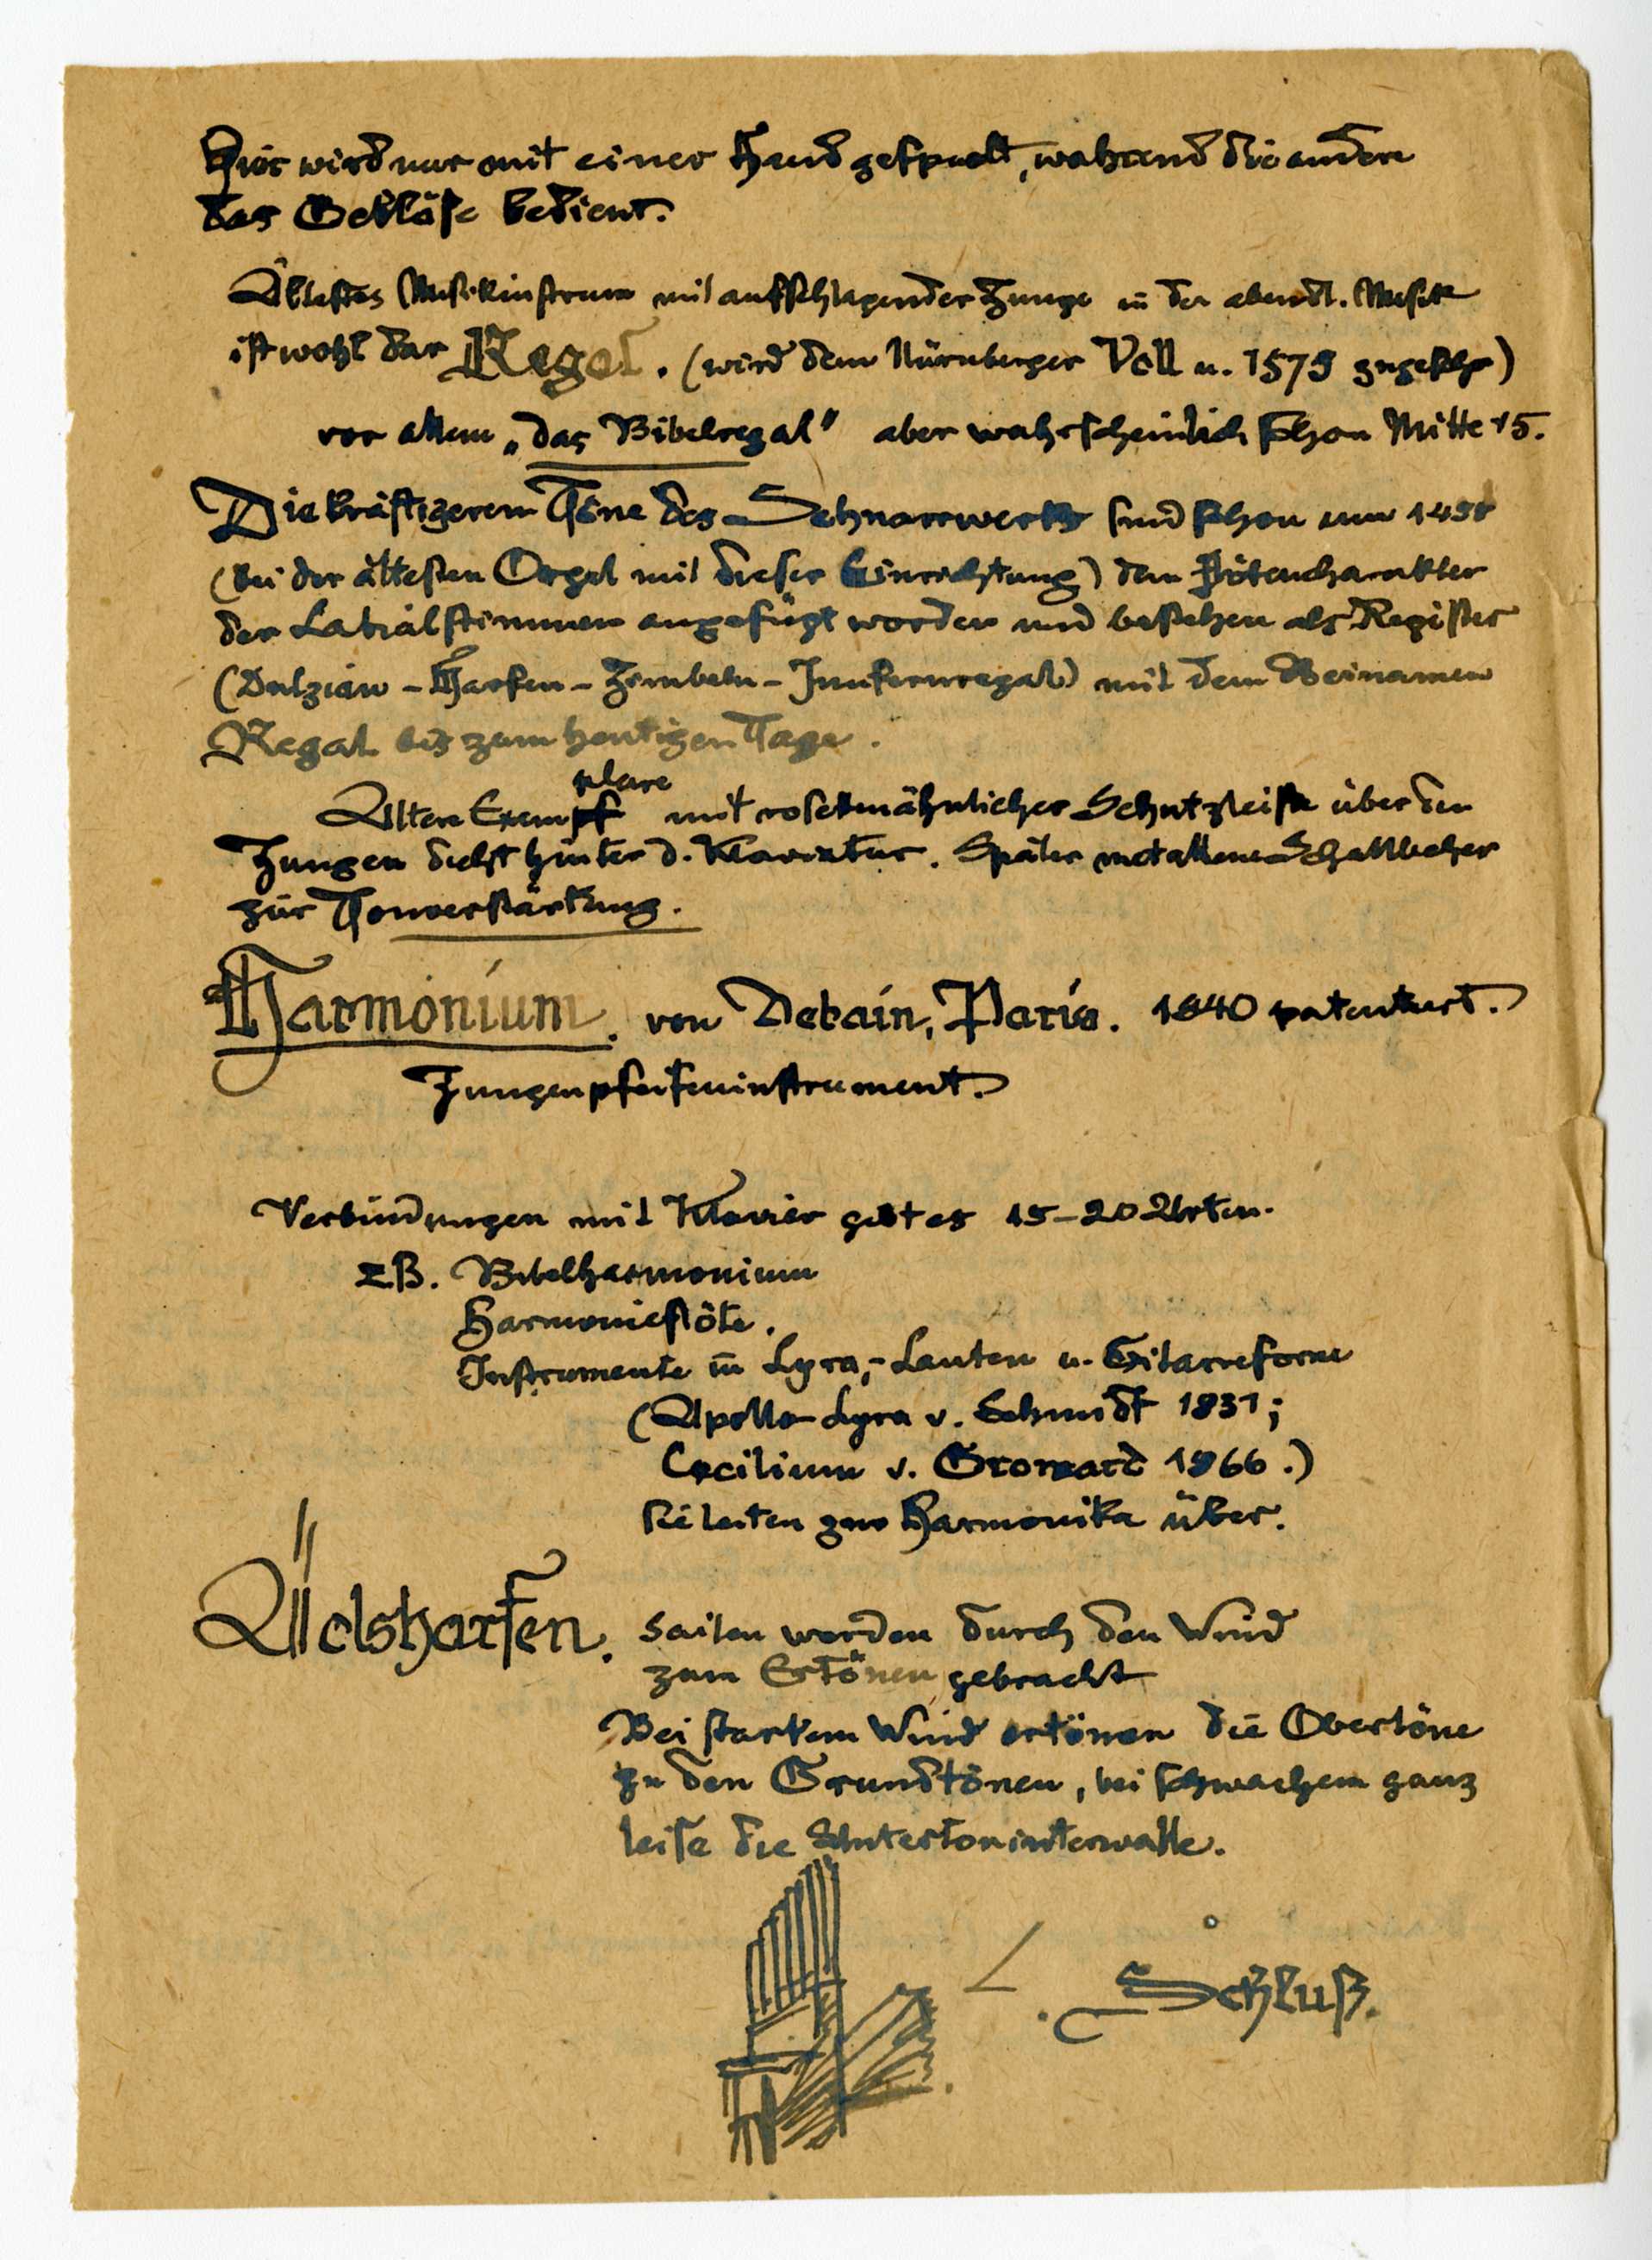 Hier wird nur mit einer Hand gespielt, während die andere
das Gebläse bedient.
Ältestes Musikinstrum mit aufschlagender Zunge in der abendl. Musik
ist wohl das Regal. (wird dem Nürnberger Voll u. 1575 zugeschr)
vor allem „das Bibelregal" aber wahrscheinlich schon Mitte 15.
Die kräftigeren Töne des Schnarrwerks sind schon um
(bei der ältesten Orgel mit dieser Einrichtung) dem Flötencharakter
der Labialstimmen angefügt worden und bestehen als Register
(Dulzian - Harfen - Zimbeln - Junfernregal) mit dem Beinamen
Regal bis zum heutigen Tage.
Ältere Exemplare mit rosettenähnlicher Schutzleiste über den
Zungen dicht hinter d. Klaviatur. Später metallene Schallbecher
zur Tonverstärkung.
Harmonium. von Debain, Paris. 1840 patentiert.
Zungenpfeifeninstrument.
Verbindungen mit Klavier gibt es 15-20 Arten.
z.B. Bibelharmonium
Harmonieflöte.
Instrumente in Lyra,- Lauten u. Gitarreform
(Apollo-Lyra v. Schmidt 1831;
Cecilium v. Gromard 1866.)
sie leiten zur Harmonika über.
Äolsharfen. Saiten werden durch den Wind
zum Ertönen gebracht
Bei starkem Wind ertönen die Obertöne
zu den Grundtönen, bei schwachem ganz
leise die Untertonintervalle.
Schluß.